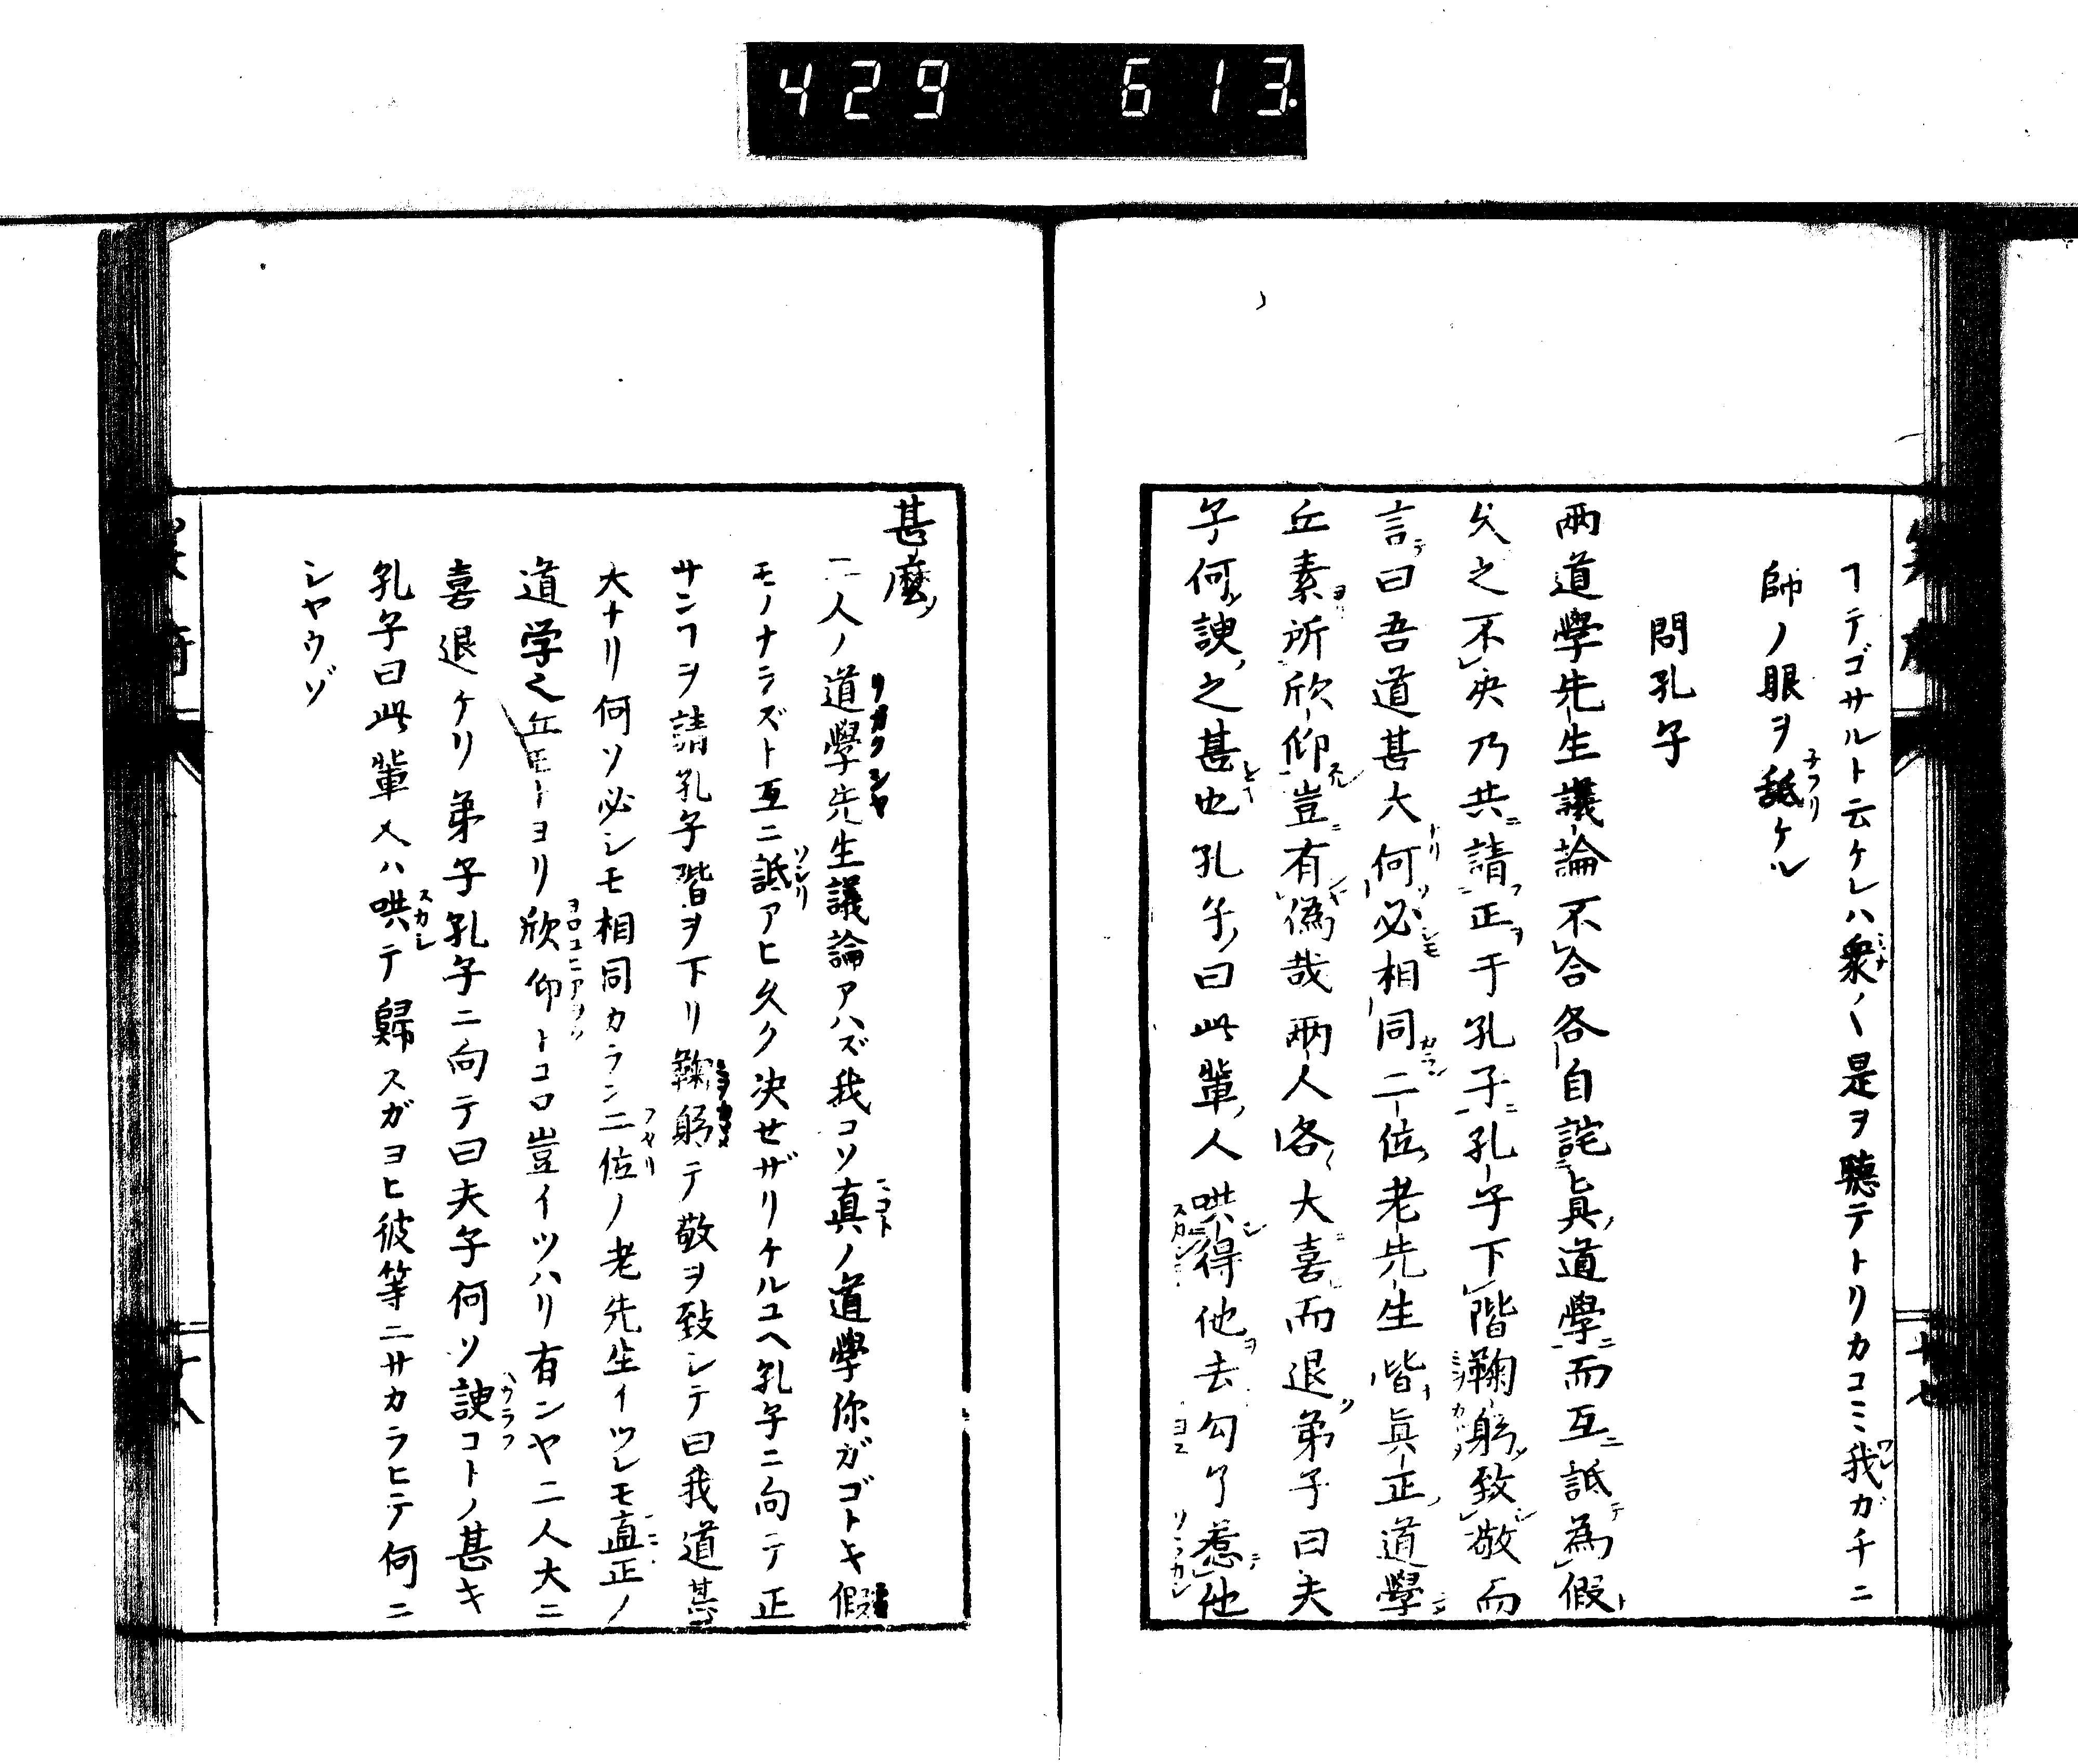 429 613
ヿテゴサルト云ケレハ衆〱是ヲ聴テトリカコミ我ガチニ
師ノ眼ヲ舐ケル
問孔子
兩道學先生議論不合各自詫眞道學而互詆為假
久之不决乃共請正于孔子孔子下階鞠躬致敬而
言曰吾道甚大何必相同二位老先生皆眞正道學
丘素所欣仰豈有偽哉兩人各大喜而退弟子曰夫
子何諛之甚也孔子曰此輩人哄得他去勾了惹他
甚麼
二人ノ道學先生議論アハズ我コソ真ノ道學你ガゴトキ假
モノナラズト互ニ詆アヒ久ク决せザリケルユヘ孔子ニ向テ正
サンヿヲ請孔子階ヲ下リ鞠躬テ敬ヲ致シテ曰我道甚
大ナリ何ソ必シモ相同カラン二位ノ老先生イツレモ真正ノ
道学之丘モトヨリ欣仰トコロ豈イツハリ有ンヤ二人大ニ
喜退ケリ弟子孔子ニ向テ曰夫子何ソ諛コトノ甚キ
孔子曰此輩人ハ哄テ歸スガヨヒ彼等ニサカラヒテ何ニ
シヤウゾ